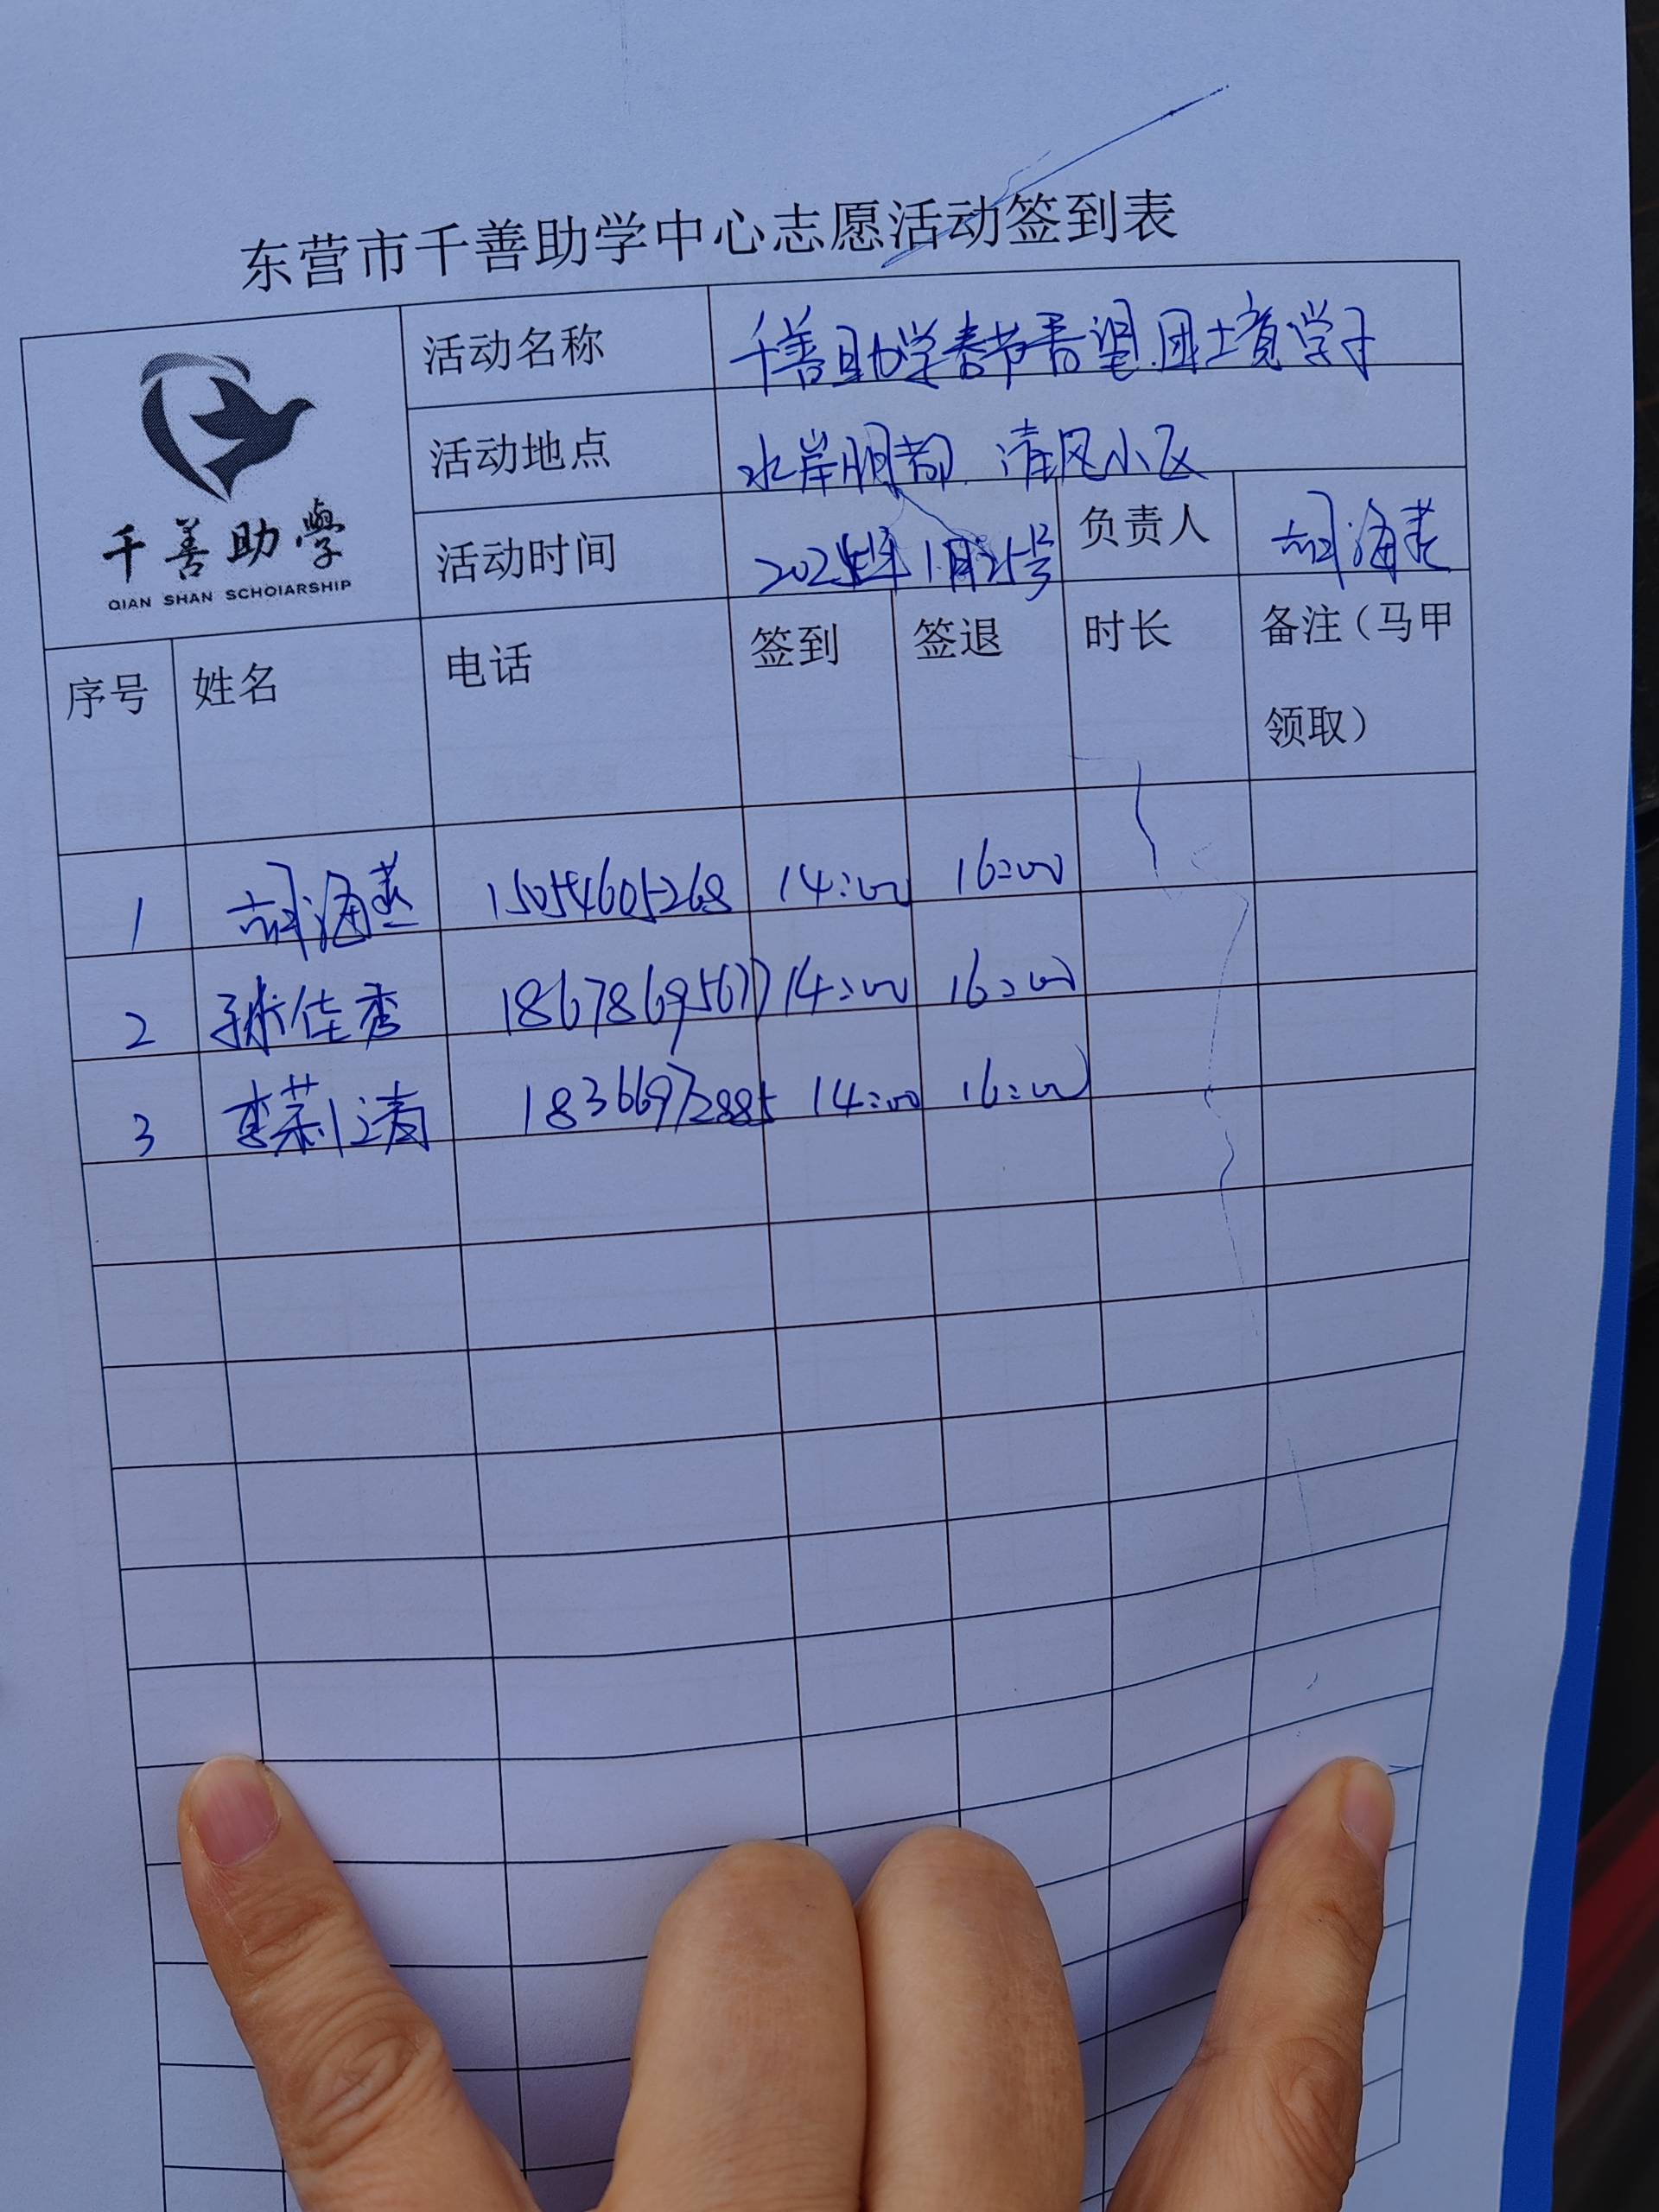 东营市千善助学中心志愿活动签到表
活动名称 千善助学春节看望困境学子
活动地点 水岸明都、清风小区
千善助學
QIAN SHAN SCHOlARSHIP
活动时间 1月21号 负责人 胡海燕
序号 姓名 电话 签到 签退 时长 备注（马甲
领取）
1 胡海燕 15054605268 14:00 16:00
2 孙佳秀 14:00 16:00
3 18366972885 14:00 16:00